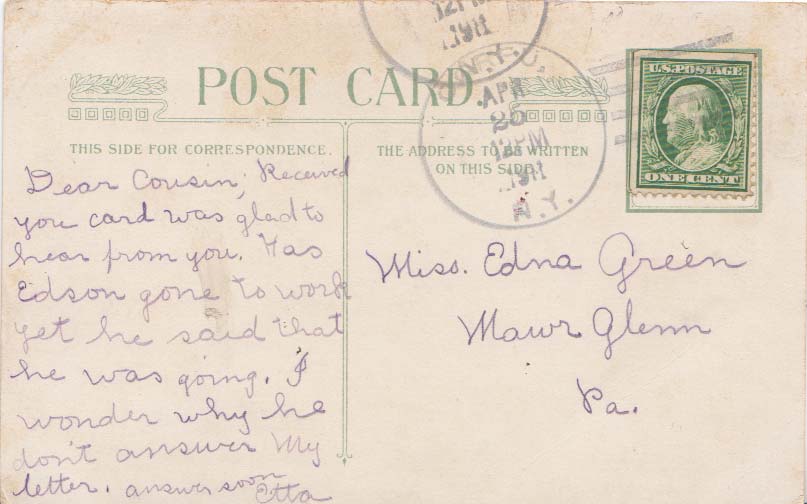 12PM
1911
N.Y.
POST CARD.
APR
25
12PM
1911
N.Y.
U.S. POSTAGE
ONE CENT
THIS SIDE FOR CORRESPONDENCE.
THE ADDRESS TO BE WRITTEN
ON THIS SIDE
Dear Cousin; Received
you card was glad to
hear from you. Has
Edson gone to work
yet he said that
he was going. I
wonder why he
don't answer my
letter. answer soon
Etta
Miss. Edna Green
Mawr Glenn
Pa.